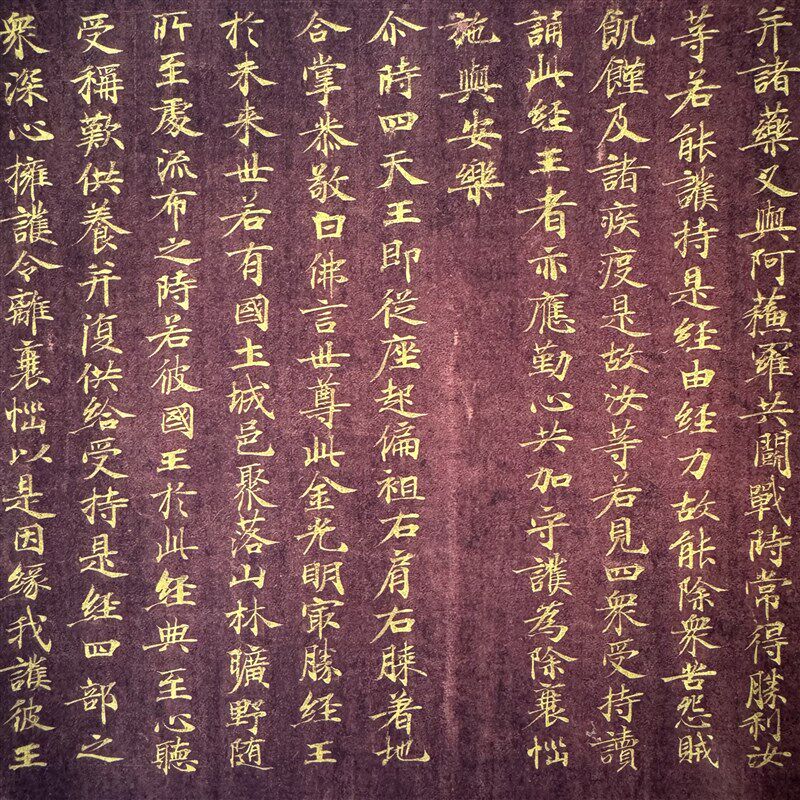 并諸藥叉與阿蘓羅共鬪戰時常得勝利汝
等若能護持是經由經力故能除衆苦怨賊
飢饉及諸疾疫是故汝等若見四衆受持讀
誦此經王者亦應勤心共加守護為除衰惱
施與安樂
尒時四天王即從座起偏袒右肩右膝著地
合掌恭敬白佛言世尊此金光明最勝經王
於未来世若有國土城邑聚落山林曠野随
所至處流布之時若彼國王於此經典至心聽
受稱歎供養并復供給受持是經四部之
衆深心擁護令離衰惱以是因緣我護彼王